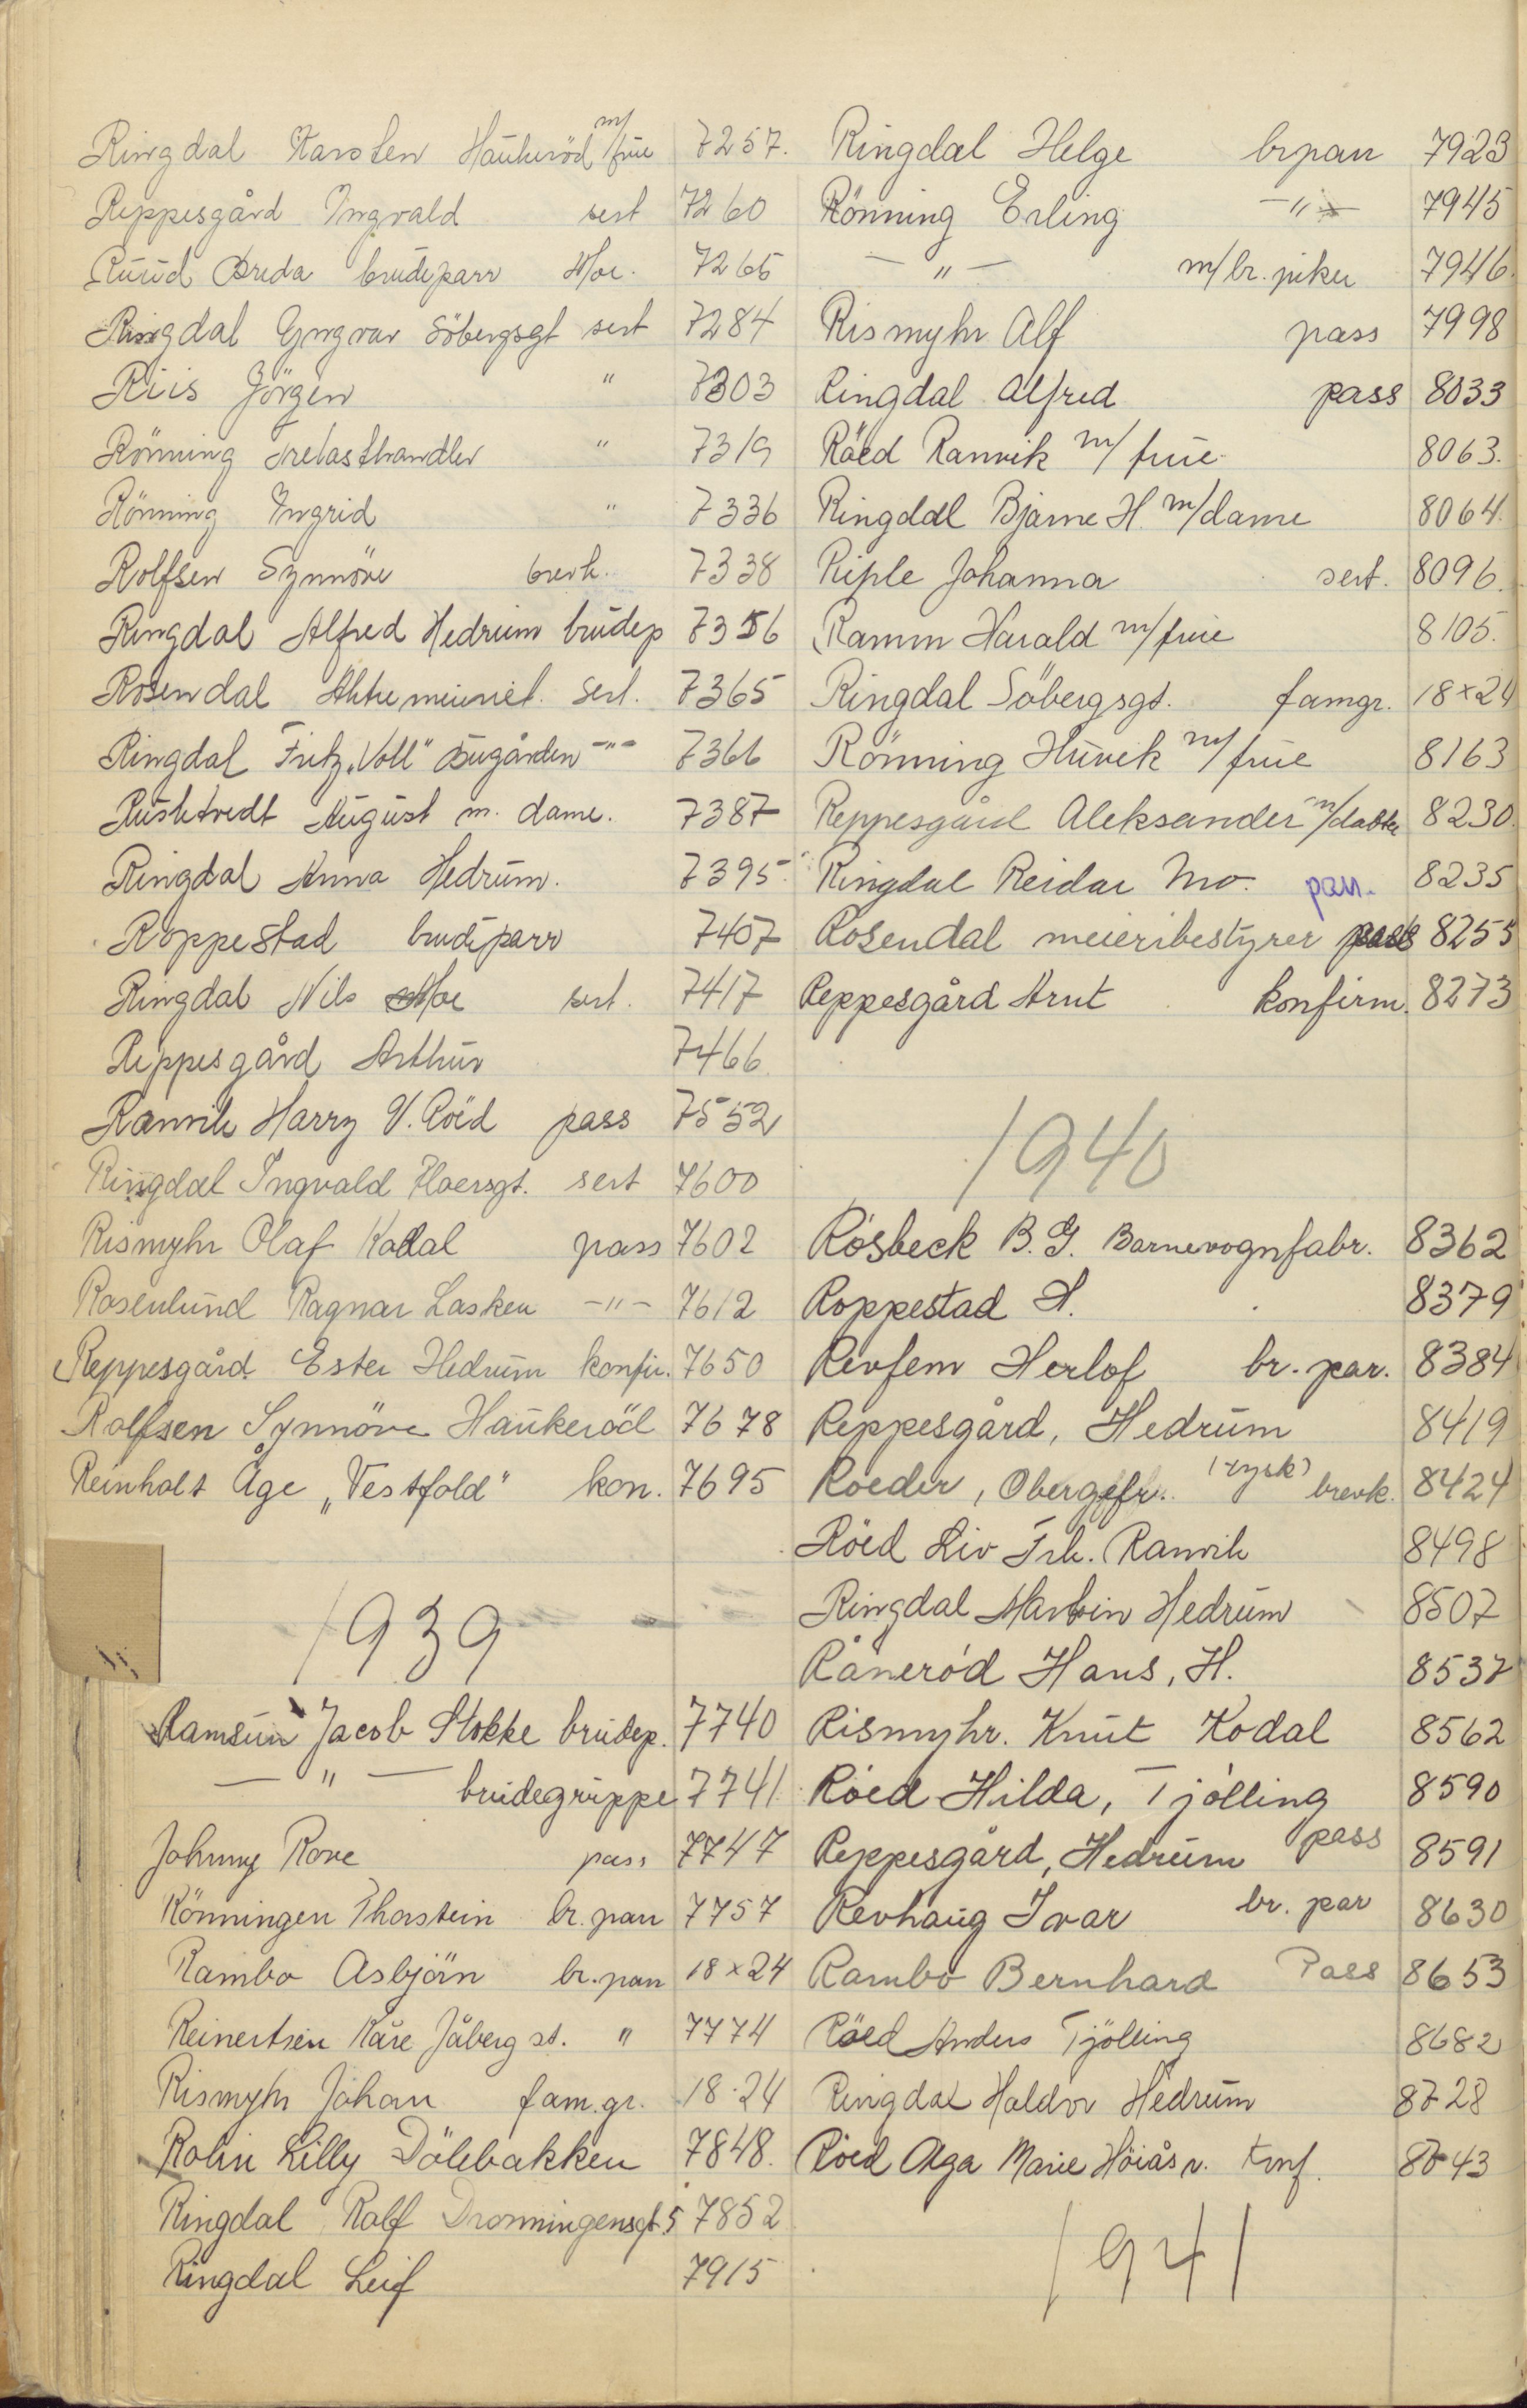 Ringdal Karsten Haukeröd m/frue 7257.
Reppesgård Ingvald sert 7260
Ruud Breda brudeparr Moe. 7265
Ringdal Yngvar Söbergsgt sert 7284
Riis Jörgen " 7303
Rönning Trelasthandler " 7319
Rönning Ingrid " 7336
Rolfsen Synnöve brevk. 7338
Ringdal Alfred Hedrum brudep 7356
Rosendal Aktiemeieriet. sert. 7365
Ringdal Fritz „Voll" -"- 7366
August m. dame. 7387
Ringdal Anna Hedrum. 7395
Roppestad brudeparr 7407
Ringdal Nils Moe sert. 7417
Reppesgård Arthur 7466
Ranvik Harry V. Röed pass 7552
Ringdal Ingvald sert 7600
Rismyhr Olaf Kodal pass 7602
Rosenlund Ragnar Lasken -"- 7612
Reppesgård Ester Hedrum konfir. 7650
Rolfsen Synnöve Haukeröd 7678
Reinholt Åge „Vestfold" kon. 7695
1939
Ramsum Jacob Stokke brudep. 7740
— " — brudegruppe 7741
Johnny Rove pass 7747
Rönningen Thorstein br. parr 7757
Rambo Asbjörn br. parr 18×24
Reinertsen Kåre Jåberg st. " 7774
Rismyhr Johan fam. gr. 18·24
Rolin Lilly Dölebakken 7848.
Ringdal Ralf Dronningensgt. 5 7852
Ringdal Leif 7915
Ringdal Helge brparr 7923
Rönning Erling -"- 7945
— " — m/br. piker 7946.
Rismyhr Alf pass 7998
Ringdal Alfred pass 8033
Röed Ranvik m/frue 8063.
Ringdal Bjarne H. m/dame 8064.
Riple Johanna sert. 8096.
Ramm Harald m/frue 8105.
Ringdal Söbergsgt. famgr. 18×24
Rönning Huvik m/frue 8163
Reppesgård Aleksander m/datter 8230.
Ringdal Reidar Mo. parr. 8235
Rosendal meieribestyrer pass 8255
Reppesgård Arnt konfirm. 8273
1940
Rösbeck B. G. Barnevognfabr. 8362
Roppestad H. 8379
Revfem Herlof br. par. 8384
Reppesgård, Hedrum 8419
Roeder, Obergefr. (tysk) brevk. 8424
Röed Liv Frk. Ranvik 8498
Ringdal Martin Hedrum 8507
Rånerød Hans, H. 8537
Rismyhr. Knut Kodal 8562
Röed Hilda, Tjölling 8590
Reppesgård, Hedrum pass 8591
Revhaug Ivar br. par 8630
Rambo Bernhard Pass 8653
Röed Anders Tjölling 8682
Ringdal Haldor Hedrum 8728
Röed Aga Marie Höiås v. konf. 8743
1941